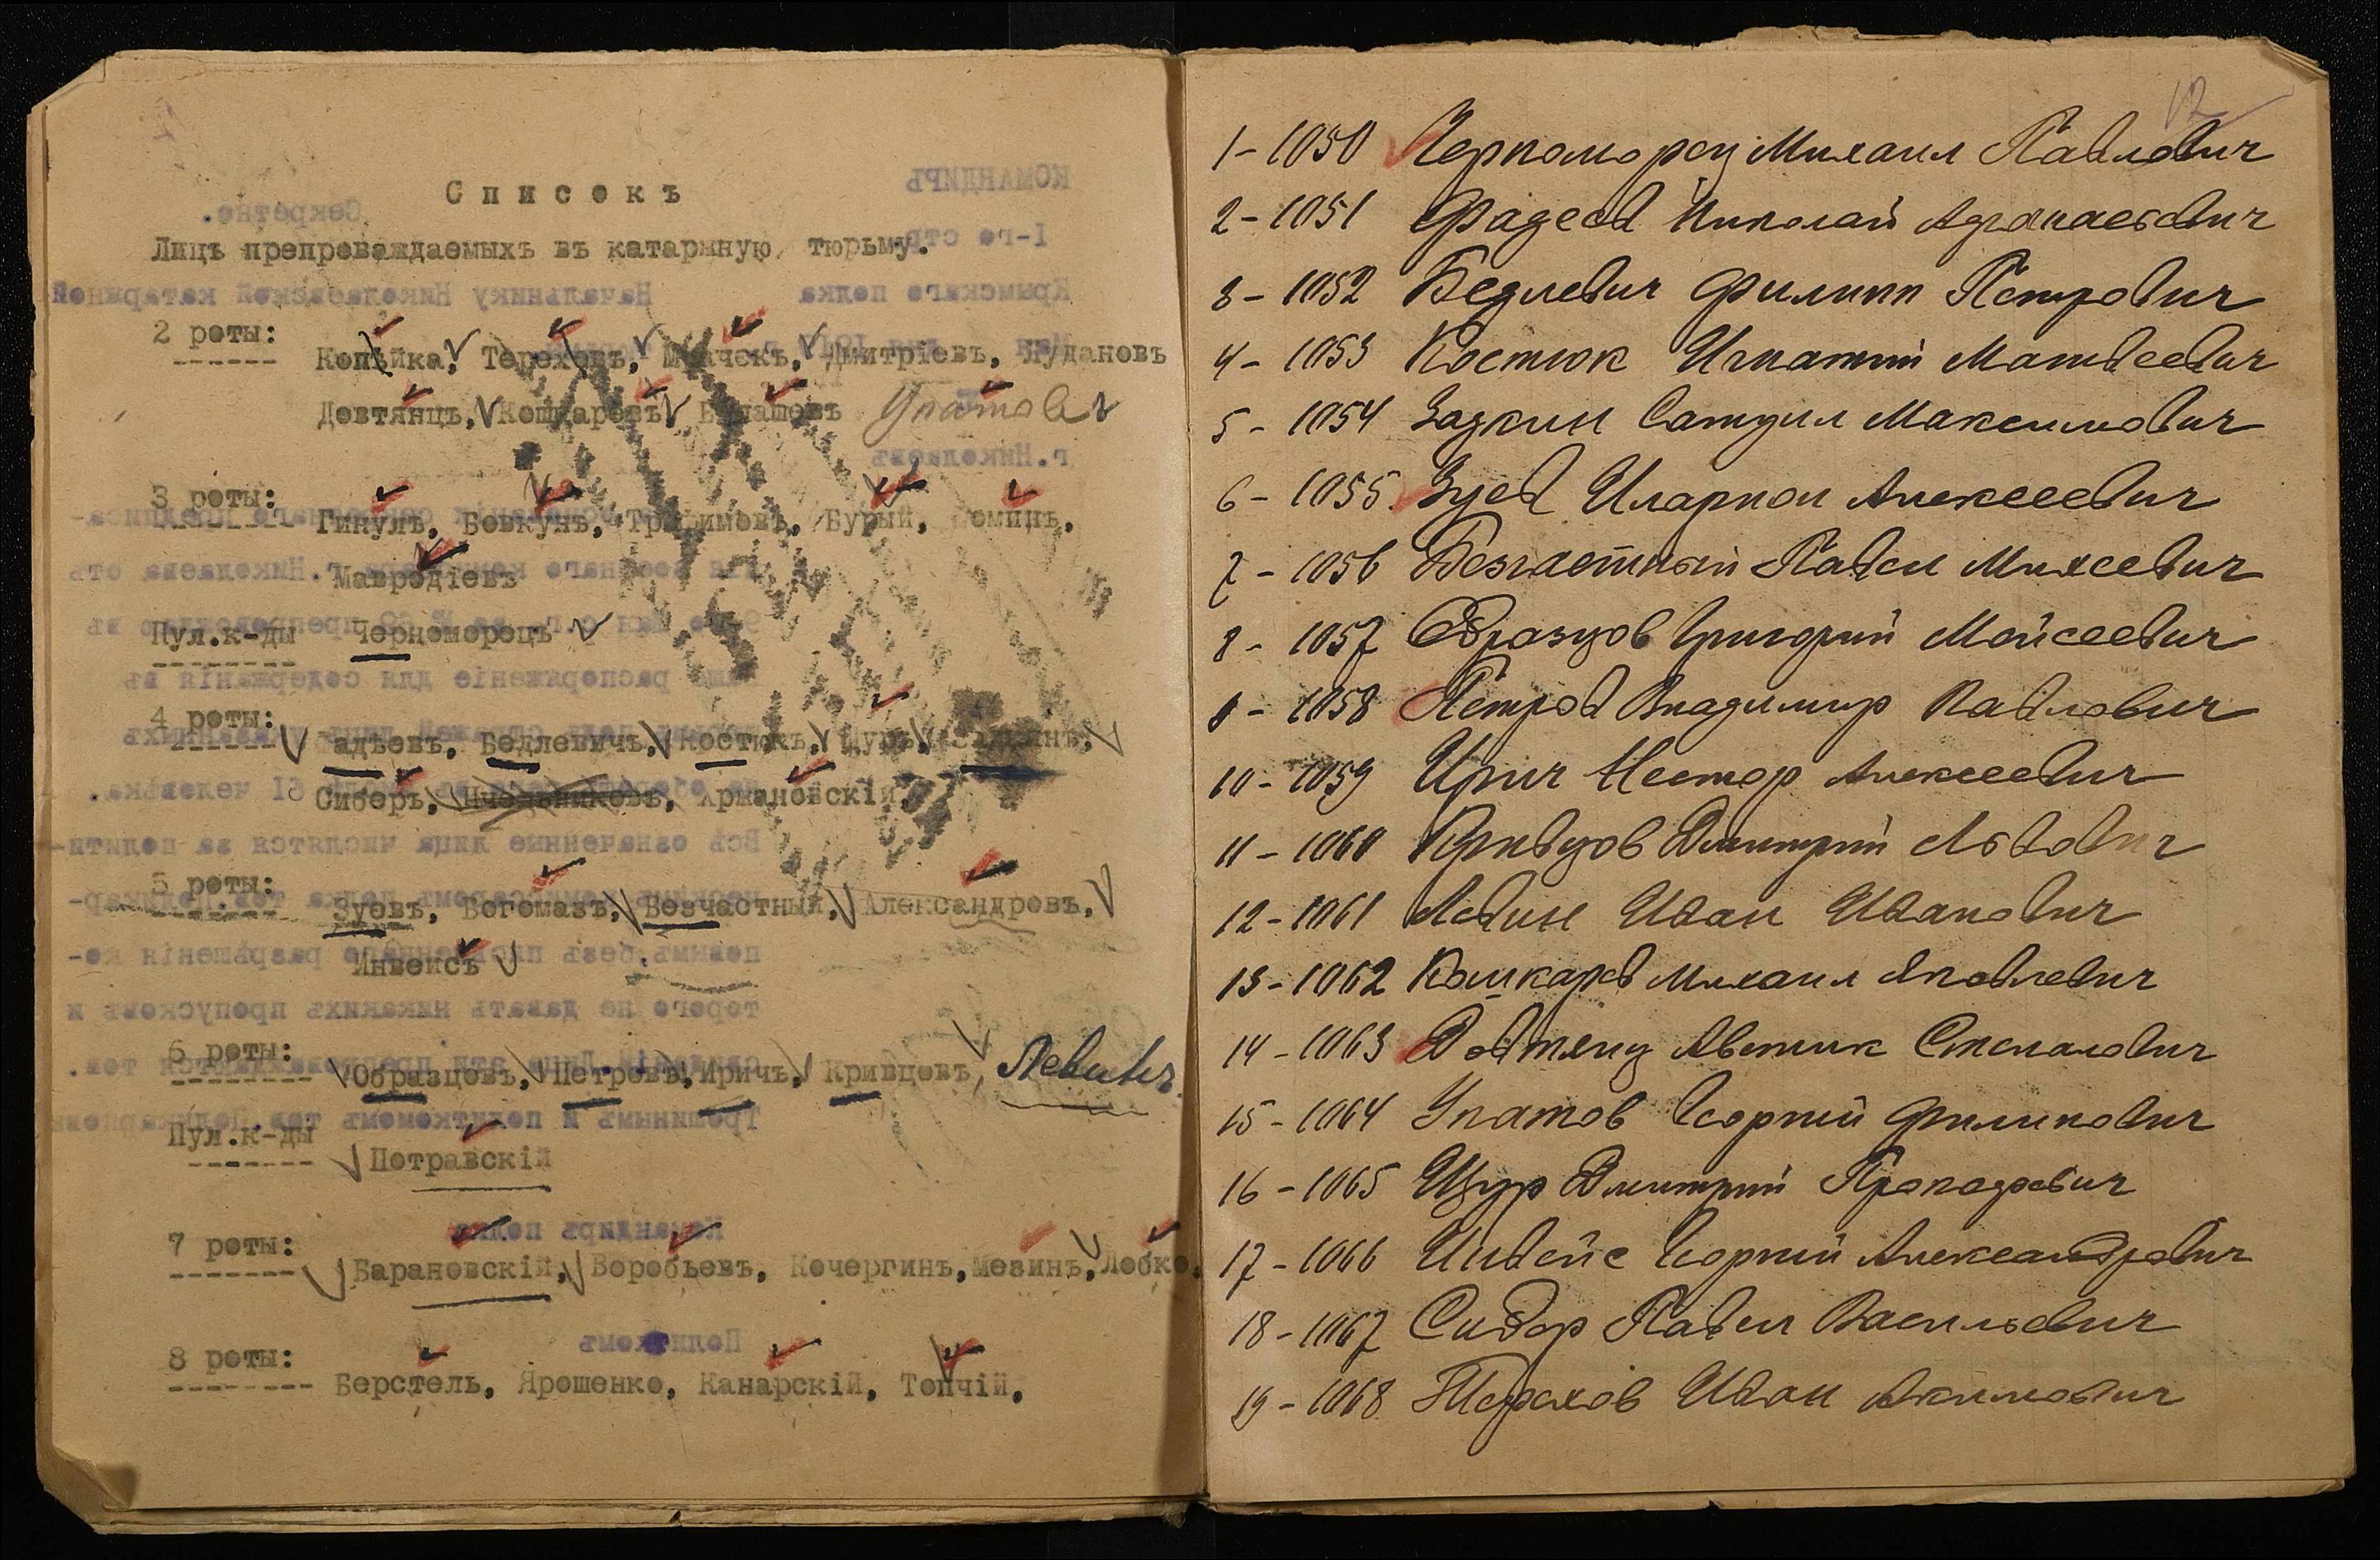 Списокъ
Лицъ препровождаемыхъ въ катаржную тюрьму.
2 роты:
Копѣйка, Тороховъ, Дмитріевъ, Лудановъ
Довтянцъ, Кошкаровъ, Упатов
3 роты:
Гинулъ, Бовкунъ, Трофимовъ, Бурый, Фоминъ,
Мавродіевъ
Пул.к-ды Черноморецъ
4 роты:
Фадѣевъ, Бедлевичъ, Костюкъ, Щуръ,
Сиборъ, Пчельниковъ, Аржановскій,
5 роты:
Зуевъ, Богомазъ, Безчастный, Александровъ,
Инвейсъ
6 роты:
Образцовъ, Петровъ, Иричъ, Кривцовъ, Левинъ
Пул.к-ды
Петравскій
7 роты:
Барановскій, Воробьевъ, Кочергинъ, Мезинъ, Лобко,
8 роты:
Берстель, Ярошенко, Канарскій, Топчій,
12
1-1050 Черноморец Михаил Павлович
2-1051 Фадеев Николай
3-1052 Бедлевич Филипп Петрович
4-1053 Костюк Игнатий Матвеевич
5-1054 Задкин Самуил Максимович
6-1055 Зуев Иларион Алексеевич
7-1056 Безчастный Павел Михеевич
8-1057 Образцов Григорий Мойсеевич
9-1058 Петров Владимир Павлович
10-1059 Ирич Нестор Алексеевич
11-1060 Кривцов Дмитрий Львович
12-1061 Левин Иван Иванович
13-1062 Кошкарев Михаил Яковлевич
14-1063 Довтянц Аветик Степанович
15-1064 Упатов Георгий Филипович
16-1065 Щур Дмитрий Прокофевич
17-1066 Инвейс Георгий Александрович
18-1067 Сибор Павел Васильевич
19-1068 Терехов Иван Акимович